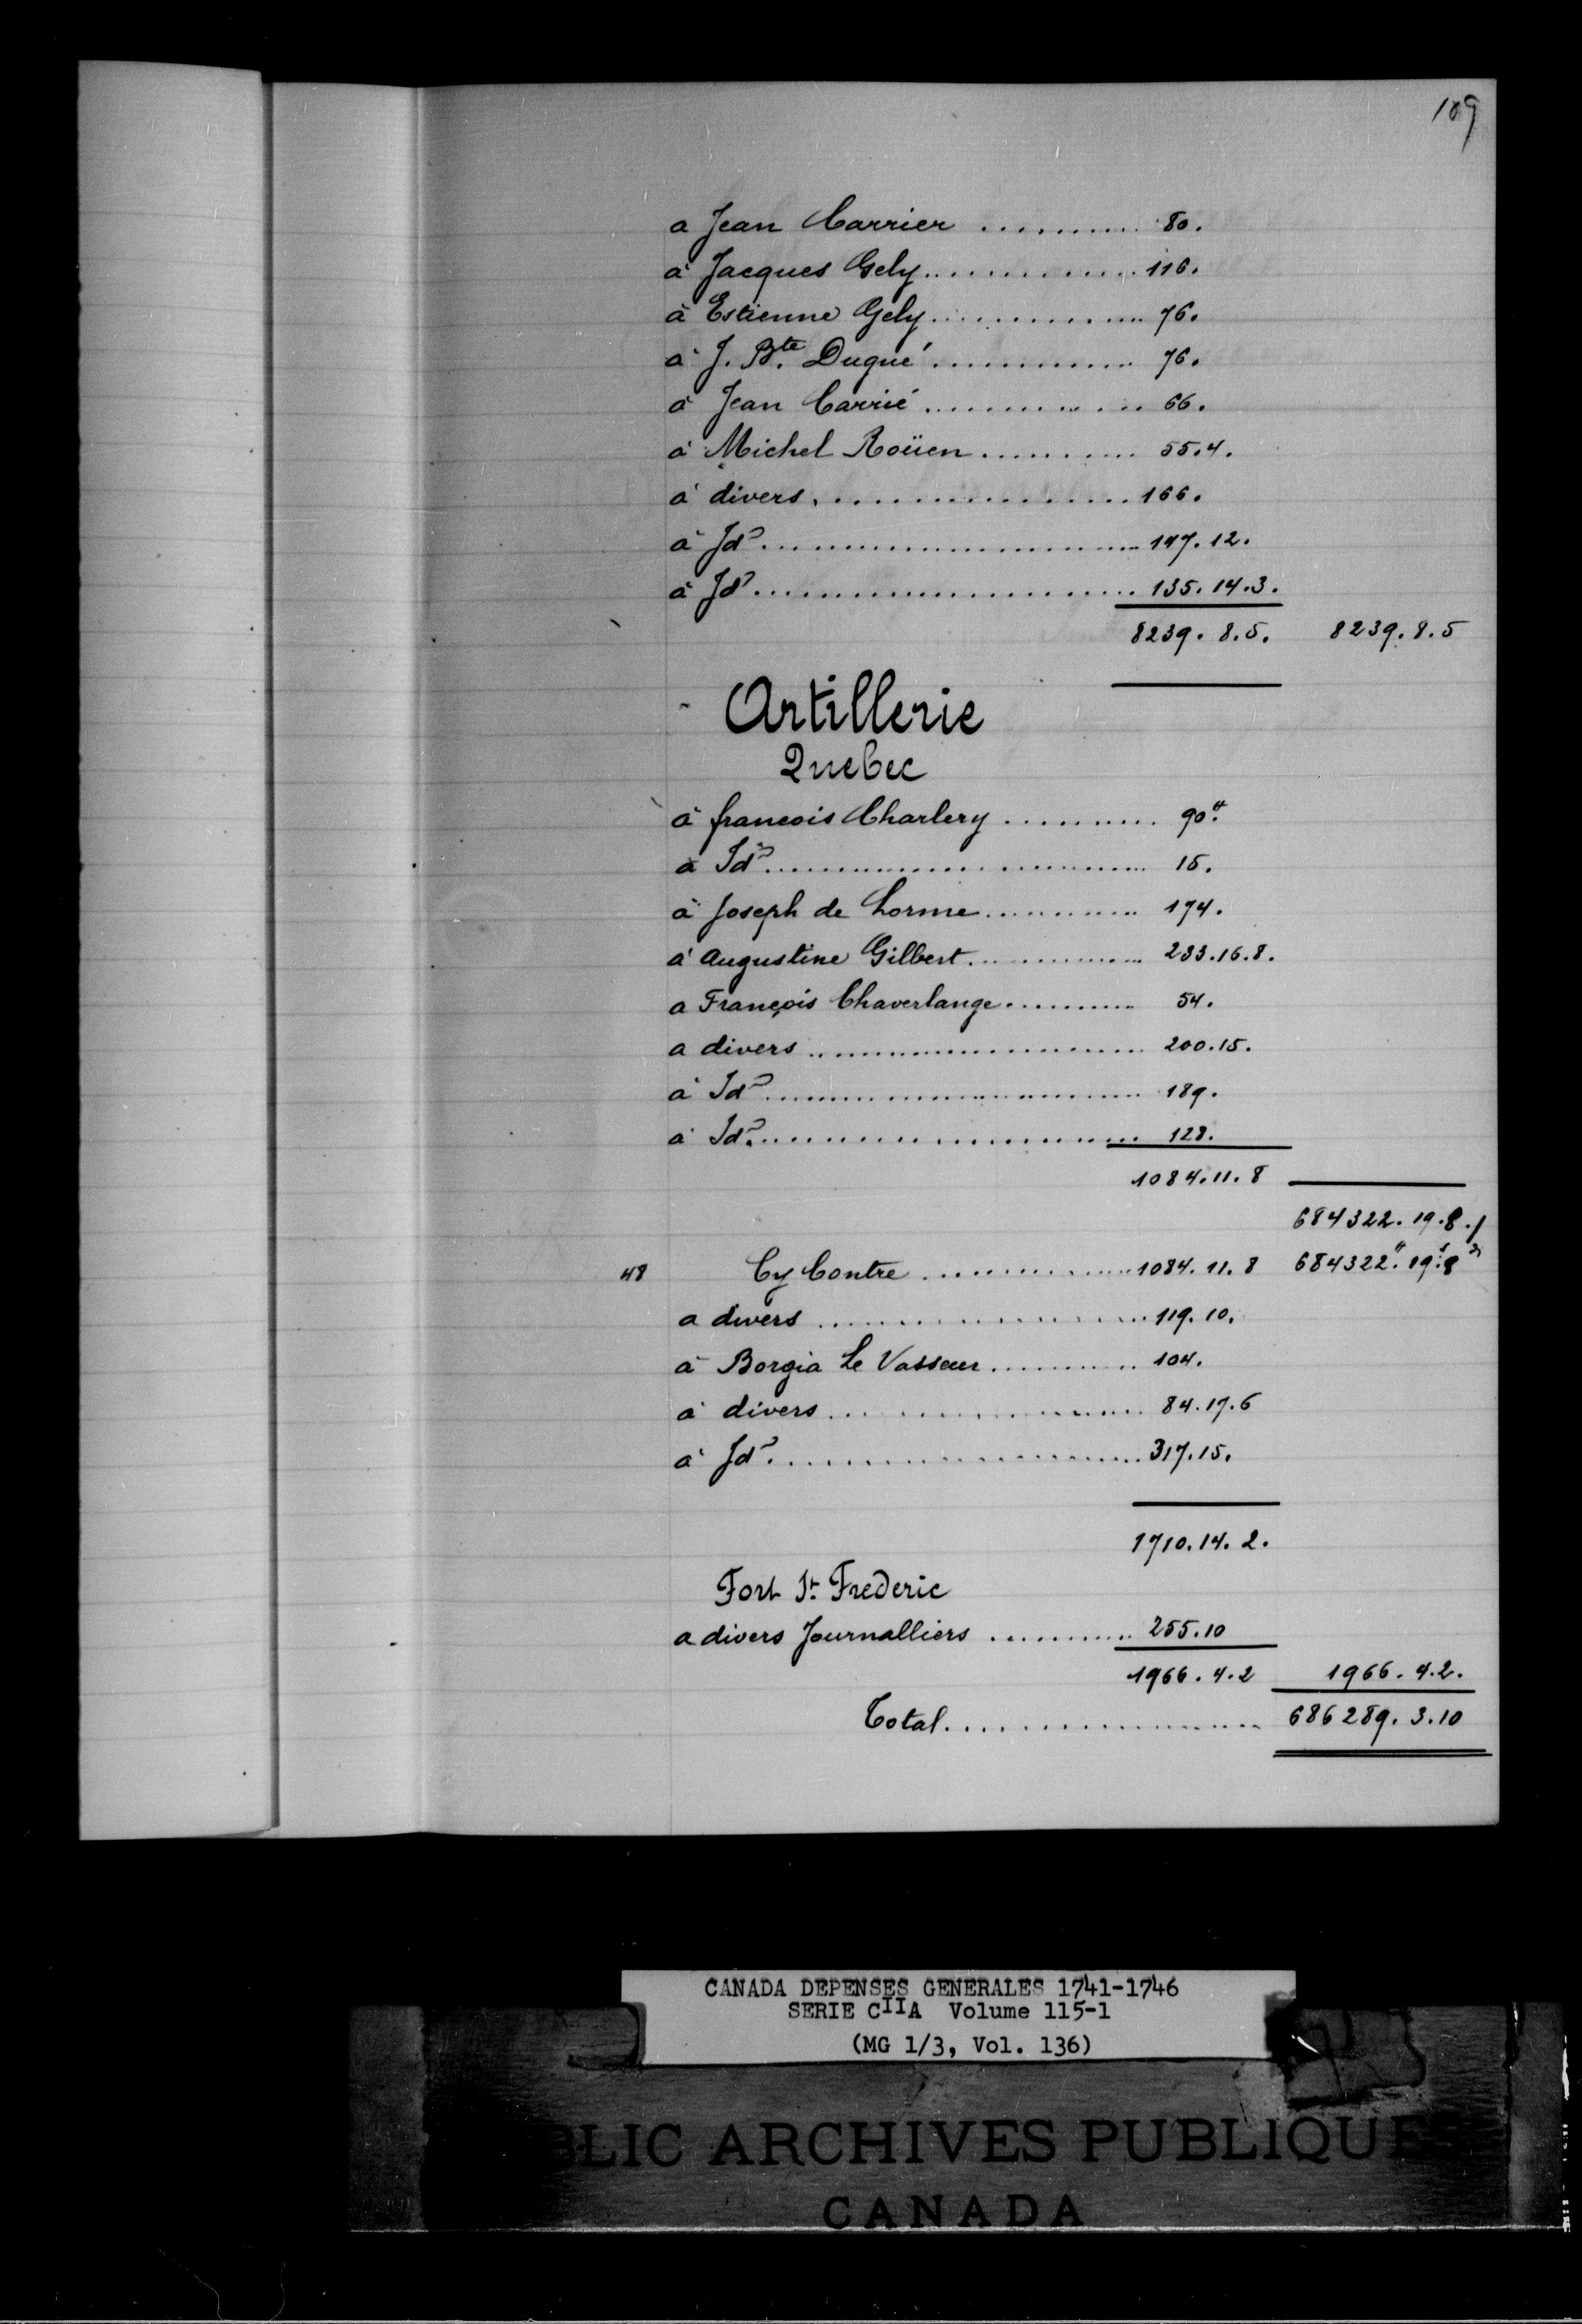 109
a Jean Carrier ........... 80.
à Jacques Gely .............. 116.
à Estienne Gely .............. 76.
à J. Bte. Dugué ............. 76.
à Jean Carrié ............. 66.
à Michel Roüen .......... 55.4.
à divers .................. 166.
à Jdo ........................ 197.12.
à Jdo ........................ 135.14.3.
8239. 8.5. 8239. 8.5
Artillerie
Quebec
à francois Charlery .......... 90#.
à Ido ........................ 15.
à Joseph de Lorme ........... 174.
à Augustine Gilbert ............. 233.16.8.
a François Chaverlange ........... 54.
a divers ........................ 200.15.
à Ido ........................ 189.
à Ido ........................ 128.
1084.11.8
684322.19.8./
48 Cy Contre ............... 1084.11.8 684322#.19s.8d
a divers .................... 119.10.
à Borgia Le Vasseur ........... 104.
à divers .................... 84.17.6
à Jdo ...................... 317.15.
1710.14.2.
Fort St. Frederic
a divers Journalliers ........... 255.10
1966.4.2 1966.4.2.
Total ..................... 686289.3.10
CANADA DEPENSES GENERALES 1741-1746
SERIE CIIA Volume 115-1
(MG 1/3, Vol. 136)
BLIC ARCHIVES PUBLIQUE
CANADA